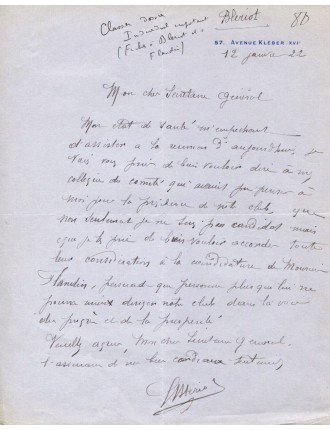 Classer sous
Individuel important
(Fiche à Bleriot et à
Flandin)
Bleriot
8D
87, AVENUE KLÉBER. XVIᵉ
12 janvier 22
Mon cher Secrétaire Général
Mon état de santé m'empêchant
d'assister à la réunion d'aujourd'hui, je
vais vous prier de bien vouloir dire à mes
collègues du comité qui avaient pu penser à
moi pour la présidence de notre club, que
non seulement je ne suis pas candidat mais
que je les prie de bien vouloir accorder toute
leur considération à la candidature de Monsieur
Flandin, persuadé que personne plus que lui ne
pourra mieux diriger notre club dans la voie
du progrès et de la prospérité
Veuillez agréer Mon cher Secrétaire Général
l'assurance de mes cordiaux sentiments
LBleriot